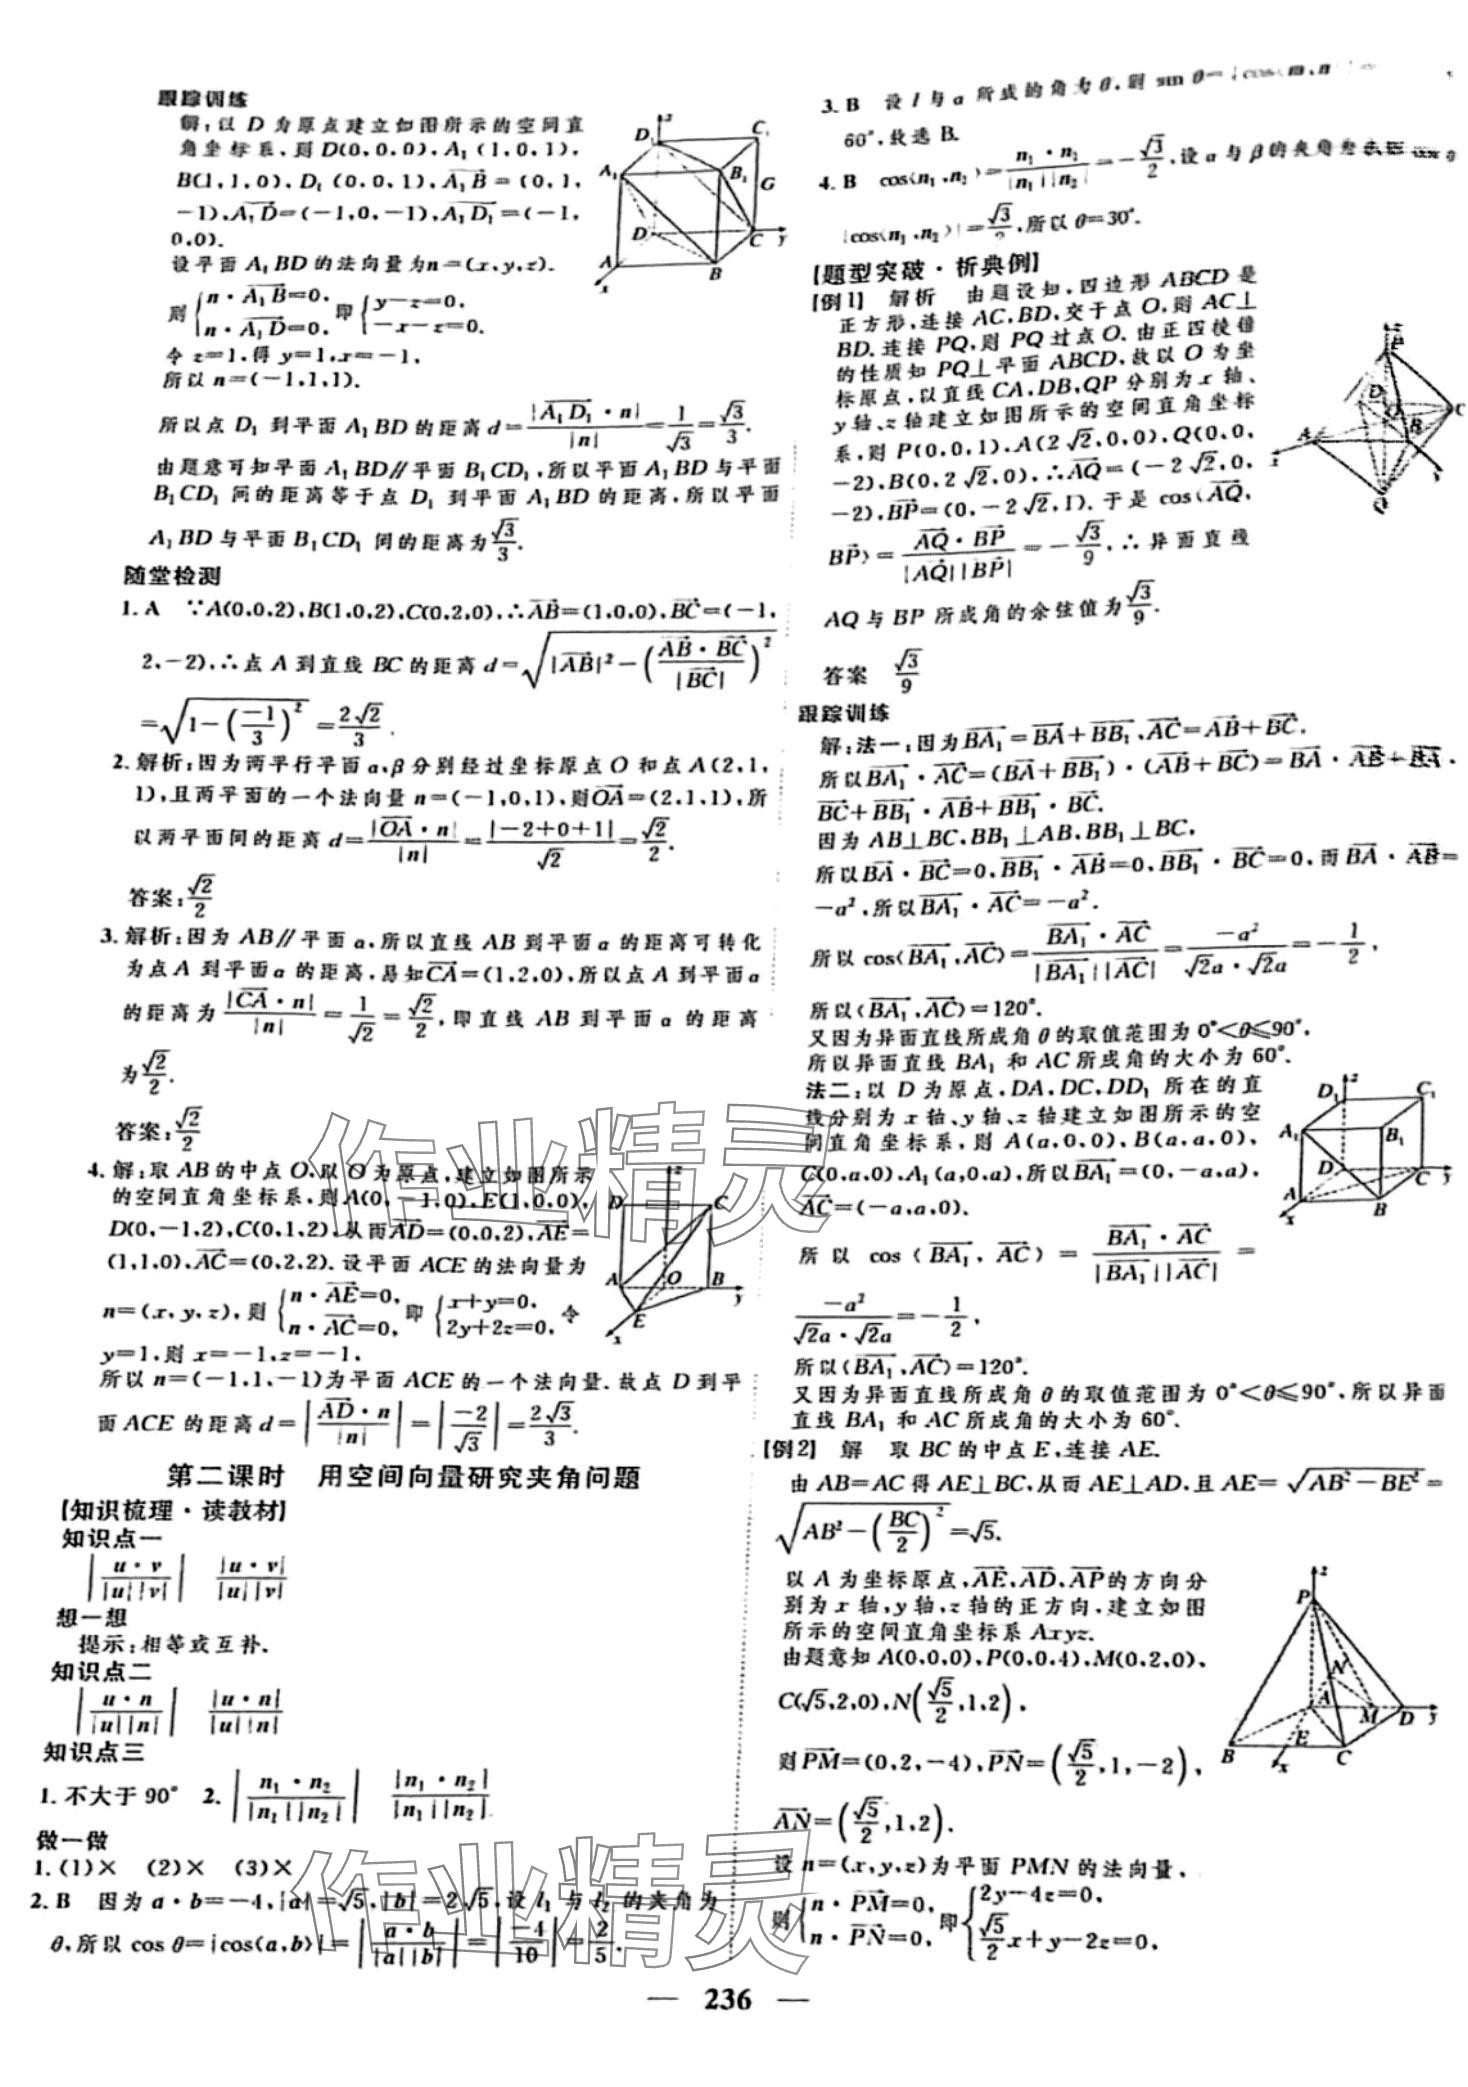 跟踪训练
解:以 D 为原点建立如图所示的空间直
角坐标系,则D(0,0,0),A₁(1,0,1),
B(1,1,0),D₁(0,0,1),A₁B→=(0,1,
-1),A₁D→=(-1,0,-1),A₁D₁→=(-1,
0,0).
设平面 A₁BD 的法向量为n=(x,y,z).
则{n·A₁B→=0, n·A₁D→=0, 即{y-z=0, -x-z=0.
令 z=1,得 y=1,x=-1,
所以 n=(-1,1,1).
所以点 D₁ 到平面 A₁BD 的距离 d=|A₁D₁→·n|/|n|=1/√3=√3/3.
由题意可知平面 A₁BD∥平面 B₁CD₁,所以平面 A₁BD 与平面
B₁CD₁ 间的距离等于点 D₁ 到平面 A₁BD 的距离,所以平面
A₁BD 与平面 B₁CD₁ 间的距离为√3/3.
随堂检测
1. A ∵A(0,0,2),B(1,0,2),C(0,2,0),∴AB→=(1,0,0),BC→=(-1,
2,-2),∴点 A 到直线 BC 的距离 d=√(|AB→|²-(AB→·BC→/|BC→|)²)
=√(1-(-1/3)²)=2√2/3.
2. 解析:因为两平行平面 α,β 分别经过坐标原点 O 和点 A(2,1,
1),且两平面的一个法向量 n=(-1,0,1),则OA→=(2,1,1),所
以两平面间的距离 d=|OA→·n|/|n|=|-2+0+1|/√2=√2/2.
答案:√2/2
3. 解析:因为 AB∥平面 α,所以直线 AB 到平面 α 的距离可转化
为点 A 到平面 α 的距离,易知CA→=(1,2,0),所以点 A 到平面 α
的距离为|CA→·n|/|n|=1/√2=√2/2,即直线 AB 到平面 α 的距离
为√2/2.
答案:√2/2
4. 解:取 AB 的中点 O,以 O 为原点,建立如图所示
的空间直角坐标系,则A(0,-1,0),E(1,0,0),
D(0,-1,2),C(0,1,2),从而AD→=(0,0,2),AE→=
(1,1,0),AC→=(0,2,2).设平面 ACE 的法向量为
n=(x,y,z),则{n·AE→=0, n·AC→=0, 即{x+y=0, 2y+2z=0, 令
y=1,则 x=-1,z=-1,
所以 n=(-1,1,-1)为平面 ACE 的一个法向量.故点 D 到平
面 ACE 的距离 d=|AD→·n/|n||=|-2/√3|=2√3/3.
第二课时 用空间向量研究夹角问题
[知识梳理·读教材]
知识点一
|u·v/|u||v|| |u·v|/|u||v|
想一想
提示:相等或互补.
知识点二
|u·n/|u||n|| |u·n|/|u||n|
知识点三
1. 不大于 90° 2. |n₁·n₂/|n₁||n₂|| |n₁·n₂|/|n₁||n₂|
做一做
1. (1)× (2)× (3)×
2. B 因为 a·b=-4,|a|=√5,|b|=2√5,设 l₁ 与 l₂ 的夹角为
θ,所以 cos θ=|cos⟨a,b⟩|=|a·b/|a||b||=|-4/10|=2/5.
3. B 设 l 与 α 所成的角为 θ,则 sin θ=|cos⟨m,n⟩|
60°,故选 B.
4. B cos⟨n₁,n₂⟩=n₁·n₂/|n₁||n₂|=-√3/2,设 α 与 β 的夹角
|cos⟨n₁,n₂⟩|=√3/2,所以 θ=30°.
[题型突破·析典例]
[例1] 解析 由题设知,四边形 ABCD 是
正方形,连接 AC,BD,交于点 O,则 AC⊥
BD.连接 PQ,则 PQ 过点 O.由正四棱锥
的性质知 PQ⊥平面 ABCD,故以 O 为坐
标原点,以直线 CA,DB,QP 分别为 x 轴、
y 轴、z 轴建立如图所示的空间直角坐标
系,则 P(0,0,1),A(2√2,0,0),Q(0,0,
-2),B(0,2√2,0),∴AQ→=(-2√2,0,
-2),BP→=(0,-2√2,1).于是 cos⟨AQ→,
BP→⟩=AQ→·BP→/|AQ→||BP→|=-√3/9,∴异面直线
AQ 与 BP 所成角的余弦值为√3/9.
答案 √3/9
跟踪训练
解:法一:因为BA₁→=BA→+BB₁→,AC→=AB→+BC→,
所以BA₁→·AC→=(BA→+BB₁→)·(AB→+BC→)=BA→·AB→+BA→·
BC→+BB₁→·AB→+BB₁→·BC→.
因为 AB⊥BC,BB₁⊥AB,BB₁⊥BC,
所以BA→·BC→=0,BB₁→·AB→=0,BB₁→·BC→=0,而BA→·AB→=
-a²,所以BA₁→·AC→=-a².
所以 cos⟨BA₁→,AC→⟩=BA₁→·AC→/|BA₁→||AC→|=-a²/(√2a·√2a)=-1/2,
所以⟨BA₁→,AC→⟩=120°.
又因为异面直线所成角 θ 的取值范围为 0°<θ≤90°,
所以异面直线 BA₁ 和 AC 所成角的大小为 60°.
法二:以 D 为原点,DA,DC,DD₁ 所在的直
线分别为 x 轴、y 轴、z 轴建立如图所示的空
间直角坐标系,则 A(a,0,0),B(a,a,0),
C(0,a,0),A₁(a,0,a),所以BA₁→=(0,-a,a),
AC→=(-a,a,0).
所以 cos⟨BA₁→,AC→⟩=BA₁→·AC→/|BA₁→||AC→|=
-a²/(√2a·√2a)=-1/2,
所以⟨BA₁→,AC→⟩=120°.
又因为异面直线所成角 θ 的取值范围为 0°<θ≤90°,所以异面
直线 BA₁ 和 AC 所成角的大小为 60°.
[例2] 解 取 BC 的中点 E,连接 AE.
由 AB=AC 得 AE⊥BC,从而 AE⊥AD,且 AE=√(AB²-BE²)=
√(AB²-(BC/2)²)=√5.
以 A 为坐标原点,AE→,AD→,AP→的方向分
别为 x 轴,y 轴,z 轴的正方向,建立如图
所示的空间直角坐标系 Axyz.
由题意知 A(0,0,0),P(0,0,4),M(0,2,0),
C(√5,2,0),N(√5/2,1,2),
则PM→=(0,2,-4),PN→=(√5/2,1,-2),
AN→=(√5/2,1,2).
设 n=(x,y,z)为平面 PMN 的法向量,
则{n·PM→=0, n·PN→=0, 即{2y-4z=0, √5/2x+y-2z=0,
— 236 —
作业精灵
作业精灵